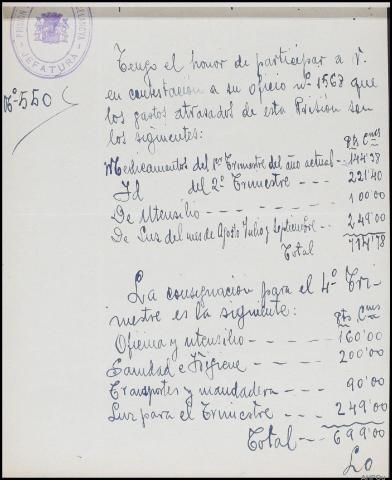 PRISION
JEFATURA
Nº 550
Tengo el honor de participar a V.
en contestación a su oficio nº 1567 que
los gastos atrasados de esta Prisión son
los siguientes:
Pts. Cms
Medicamentos del 1er Trimestre del año actual - 144'38
Id del 2º Trimestre - - - 221'40
De Utensilio - - - - - 100'00
De Luz del mes de Agosto Julio y Septiembre - - 249'00
Total 714'78
La consignación para el 4º Tri-
mestre es la siguiente:
Pts. Cms
Oficina y utensilio - - - - 160'00
Sanidad e Higiene - - - - 200'00
Transportes y mandadera - - - 90'00
Luz para el Trimestre - - - 249'00
Total - - 699'00
Lo